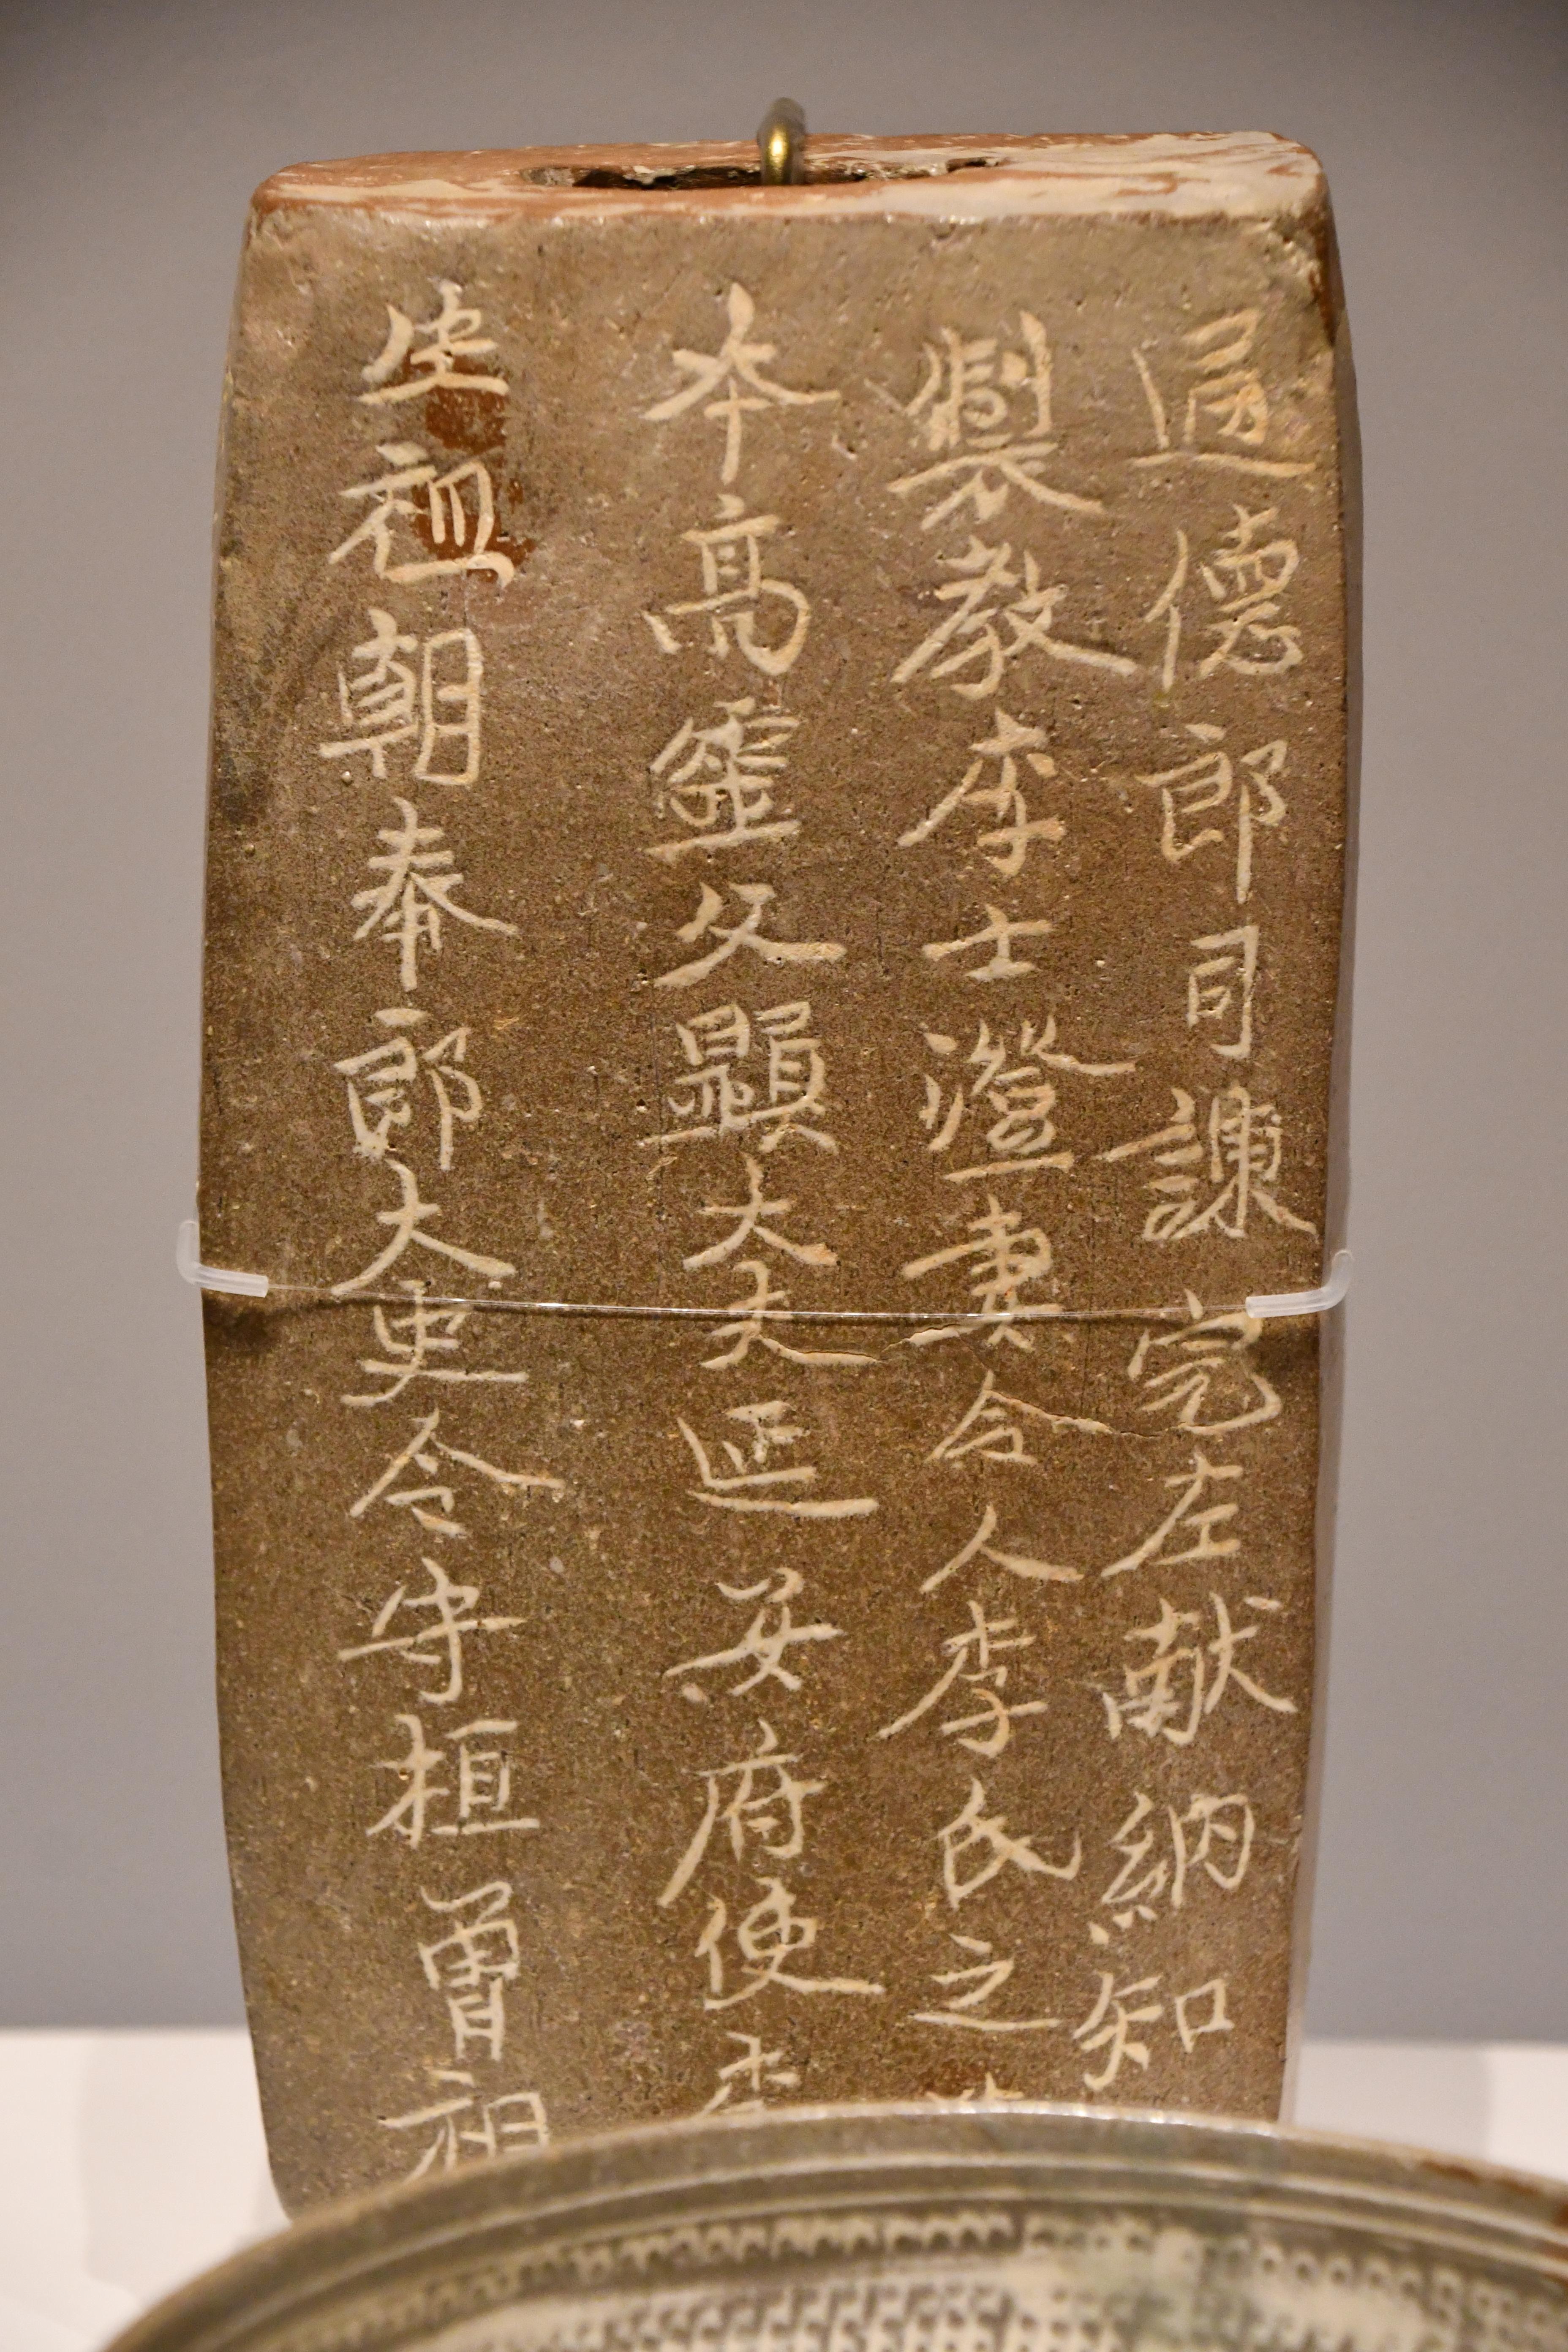 通德郎司諫完左献納知
製教李士澄妻令人李氏之
本高靈父顯大夫延安府使李
生祖朝奉郎大更令守桓曾祖